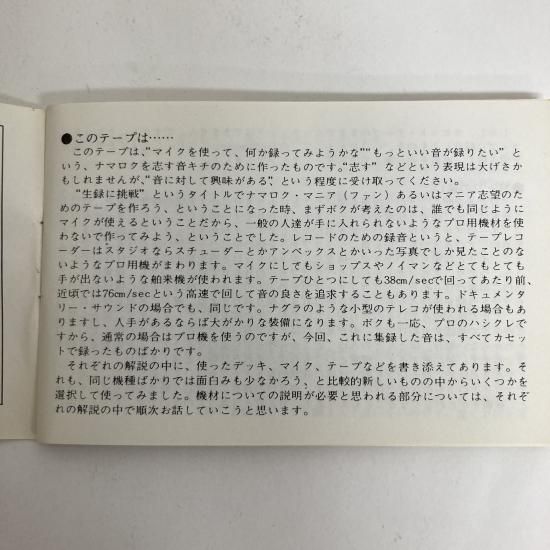 ●このテープは……
このテープは、“マイクを使って、何か録ってみようかな”“もっといい音が録りたい”と
いう、ナマロクを志す音キチのために作ったものです。“志す”などという表現は大げさか
もしれませんが、“音に対して興味がある”、という程度に受け取ってください。
“生録に挑戦”というタイトルでナマロク・マニア（ファン）あるいはマニア志望のた
めのテープを作ろう、ということになった時、まずボクが考えたのは、誰でも同じように
マイクが使えるということだから、一般の人達が手に入れられないようなプロ用機材を使
わないで作ってみよう、ということでした。レコードのための録音というと、テープレコ
ーダーはスタジオならスチューダーとかアンペックスとかいった写真でしか見たことのな
いようなプロ用機がまわります。マイクにしてもショップスやノイマンなどとてもとても
手が出ないような舶来機が使われます。テープひとつにしても38cm/secで回ってあたり前、
近頃では76cm/secという高速で回して音の良さを追求することもあります。ドキュメンタ
リー・サウンドの場合でも、同じです。ナグラのような小型のテレコが使われる場合もあ
りますし、人手があるならば大がかりな装備になります。ボクも一応、プロのハシクレで
すから、通常の場合はプロ機を使うのですが、今回、これに集録した音は、すべてカセッ
トで録ったものばかりです。
それぞれの解説の中に、使ったデッキ、マイク、テープなどを書き添えてあります。そ
れも、同じ機種ばかりでは面白みも少なかろう、と比較的新しいものの中からいくつかを
選択して使ってみました。機材についての説明が必要と思われる部分については、それぞ
れの解説の中で順次お話していこうと思います。